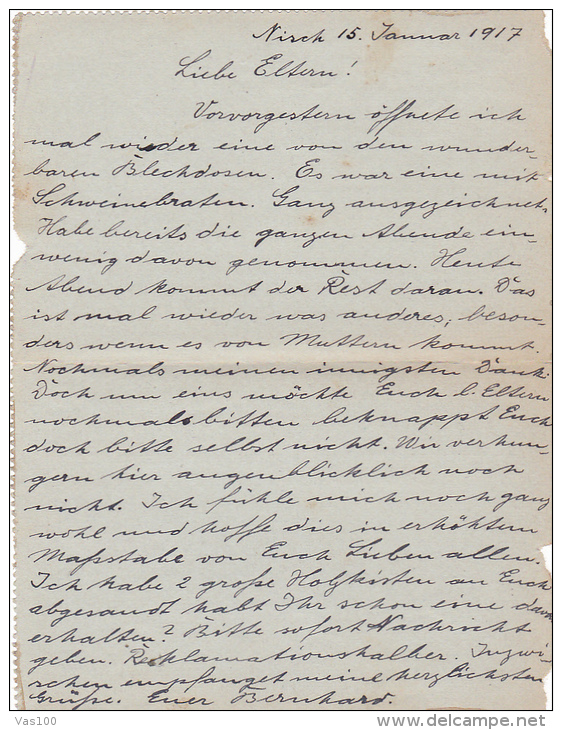 Nisch 15. Januar 1917
Liebe Eltern!
Vorvorgestern öffnete ich
mal wieder eine von den wunder-
baren Blechdosen. Es war eine mit
Schweinebraten. Ganz ausgezeichnet.
Habe bereits die ganzen Abende ein
wenig davon genommen. Heute
Abend kommt der Rest daran. Das
ist mal wieder was anderes, beson-
ders wenn es von Muttern kommt.
Nochmals meinen innigsten Dank.
Doch um eins möchte Euch l. Eltern
nochmals bitten beknappt Euch
doch bitte selbst nicht. Wir verhun-
gern hier augenblicklich noch
nicht. Ich fühle mich noch ganz
wohl und hoffe dies in erhöhtem
Maßstabe von Euch Lieben allen.
Ich habe 2 große Holzkisten an Euch
abgesandt habt Ihr schon eine davon
erhalten? Bitte sofort Nachricht
geben. Reklamationshalber. Inzwi-
schen empfanget meine herzlichsten
Grüße. Euer Bernhard.
Vas100
delcampe.net